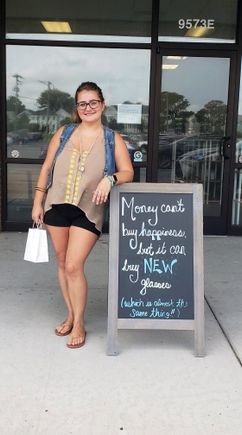 9573E
Money can't
buy happiness,
but it can
buy NEW
glasses
(which is almost the
same thing!!)